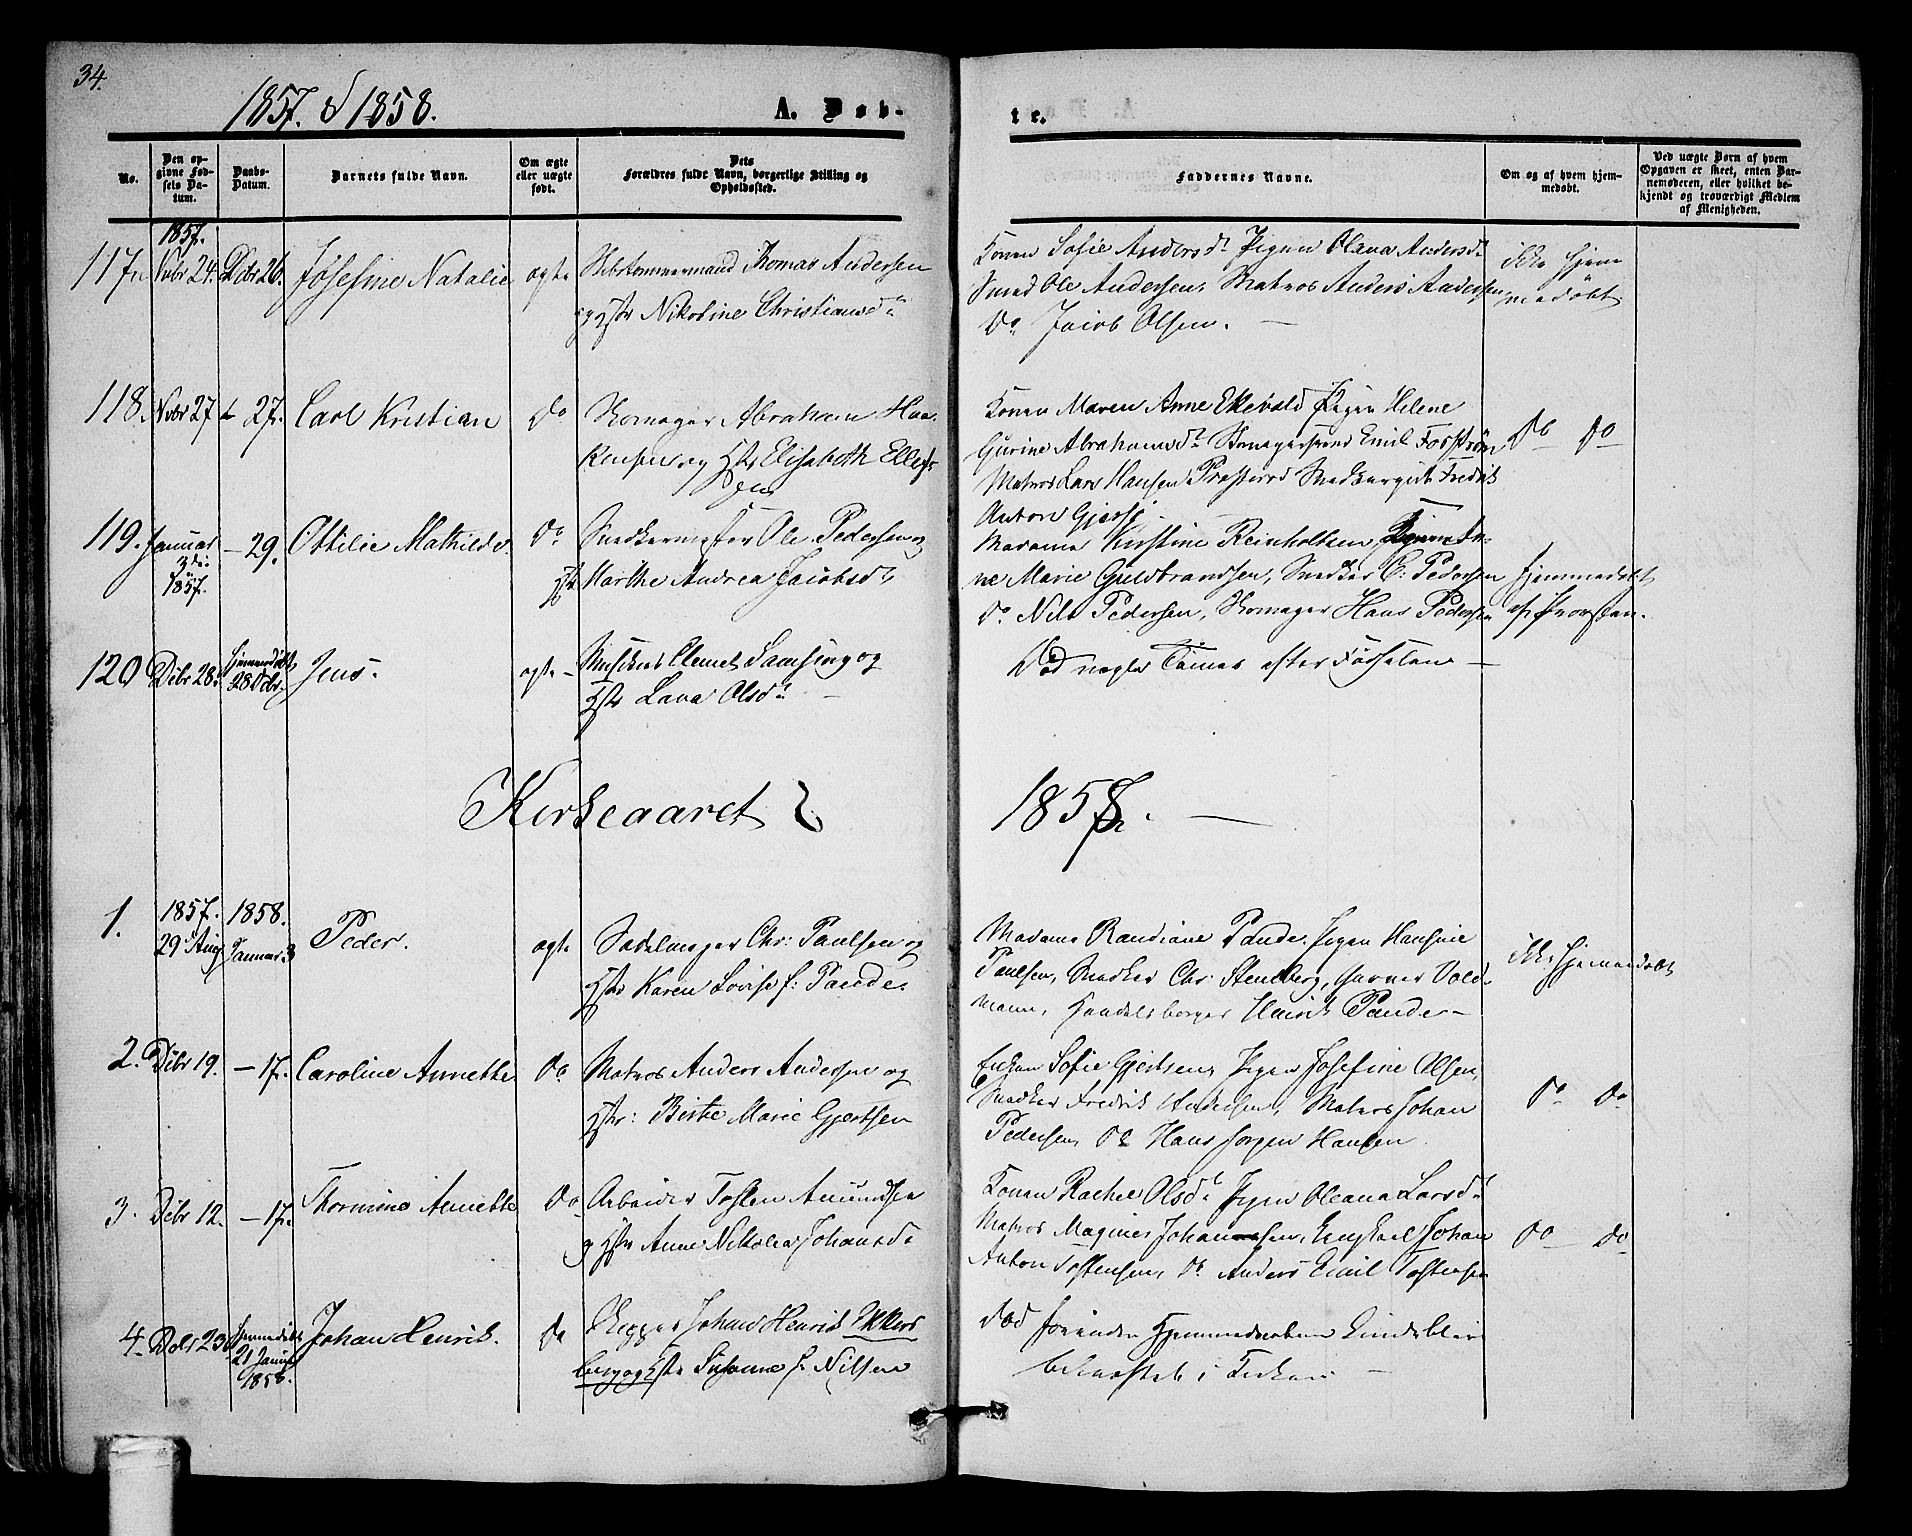 34.
1857. & 1858.
A. Døb-
te.
No.
Den op-
givne Fød-
sels Da-
tum.
Daabs-
Datum.
Barnets fulde Navn.
Om ægte
eller uægte
født.
Dets
Forældres fulde Navn, borgerlige Stilling og
Opholdssted.
Faddernes Navne.
Om og af hvem hjem-
medøbt.
Ved uægte Børn af hvem
Opgaven er skeet, enten Bar-
nemoderen, eller hvilket be-
kjendt og troværdigt Medlem
af Menigheden.
1857.
117. Nvbr 24. Dcbr 26. Josefine Natalie ægte Skibstømmermand Thomas Andersen
og Hstr Nikoline Christiansdt
Konen Sofie Andersdt Pigen Olava Andersdt
Smed Ole Andersen, Matros Anders Andersen
Do Jacob Olsen. —
ikke hjem
medøbt
118. Nvbr 27 27. Carl Kristian do Skomager Abraham Haa-
kensen og Hstr Elisabeth Ellefs
Konen Maren Anne Ekevold Pigen Helene
Gurine Abrahamsdt Skomagersvend Emil Forsstrøm
Matros Lars Hansen Snedker Fredrik
Anton
do do
119. Januar
3de
1857.
— 29. Ottilie Mathilde. do Snedkermester Ole Pedersen og
Hstr Marthe Andrea Jacobsdt
Madame Kirstine Reinholtsen An-
ne Marie Guldbrandsen, Snedker C: Pedersen
do Nils Pedersen, Skomager Hans Pedersen
hjemmedøbt
af Provsten.
120 Dcbr 28. hjemmedøbt
28 Dcbr. Jens. ægte — Musikus Clemet Samsing og
Hstr Lava Olsdt —
Død nogle Timer efter Fødselen —
Kirkeaaret
1858. —
1. 1857.
29 Aug
1858.
Januar 3
Peder. ægte Sadelmager Chr: Paulsen og
Hstr Karen Lovise f: Pande.
Madame Randiane Pande. Pigen Hansine
Paulsen, Snedker Chr: Stenberg, Garver Vold-
mann, Handelsborger Henrik Pande —
ikke hjemmedøbt
2. Dcbr 19. — 17. Caroline Annette. do Matros Anders Andersen og
Hstr: Birthe Marie Gjertsen
Enken Sofie Gjertsen, Pigen Josefine Olsen,
Snedker Fredrik Andersen, Matros Johan
Pedersen, do Hans Jørgen Hansen
do do
3. Dcbr 12. — 17. Thormine Annette do Arbeider Tosten Amundsen
og Hstr Anne Nikolea Johansdt
Konen Rachel Olsdt Pigen Oleana Larsdt
Matros Magnus Johannesen, Ungkarl Johan
Anton Tostensen, do Anders Emil Tostensen
do — do
4. Dcbr 23. Hjemmedøbt
21 Januar
1858.
Johan Henrik. do Skipper Johan Henrik Ekkers
berg og Hstr Susanne f. Nilsen
død forinden Hjemmedaaben kunde bliv
bekræftet i Kirken —